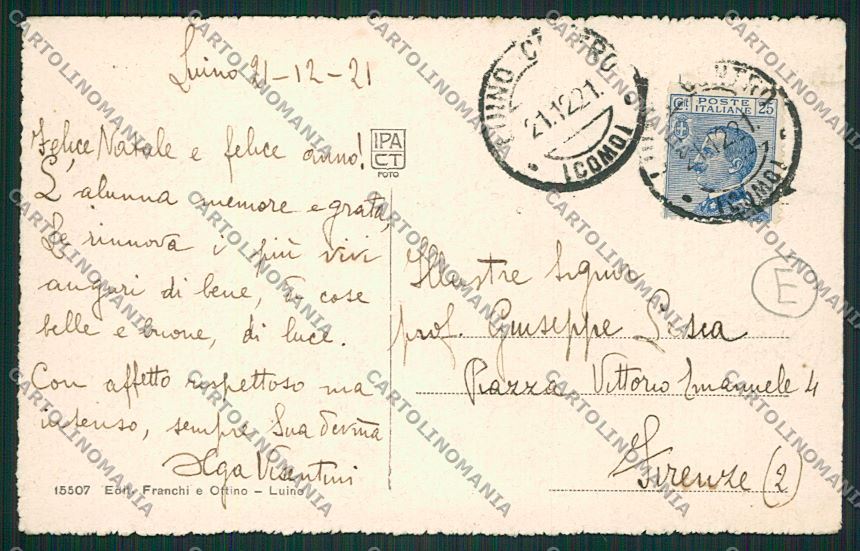 Luino 21-12-21
Felice Natale e felice anno!
L'alunna memore e grata,
Le rinnova i più vivi
auguri di bene, di cose
belle e buone, di luce.
Con affetto rispettoso ma
intenso, sempre Sua dev.ma
Olga Visentini
15507 Edit. Franchi e Ottino - Luino
IPA
CT
FOTO
LUINO CENTRO
21.12.21.
(COMO)
POSTE
ITALIANE
Ct. 25
CENTRO
21.12.21.
(COMO)
Illustre Signor
prof. Giuseppe Lesca
Piazza Vittorio Emanuele 4
Firenze (2)
E
CARTOLINOMANIA